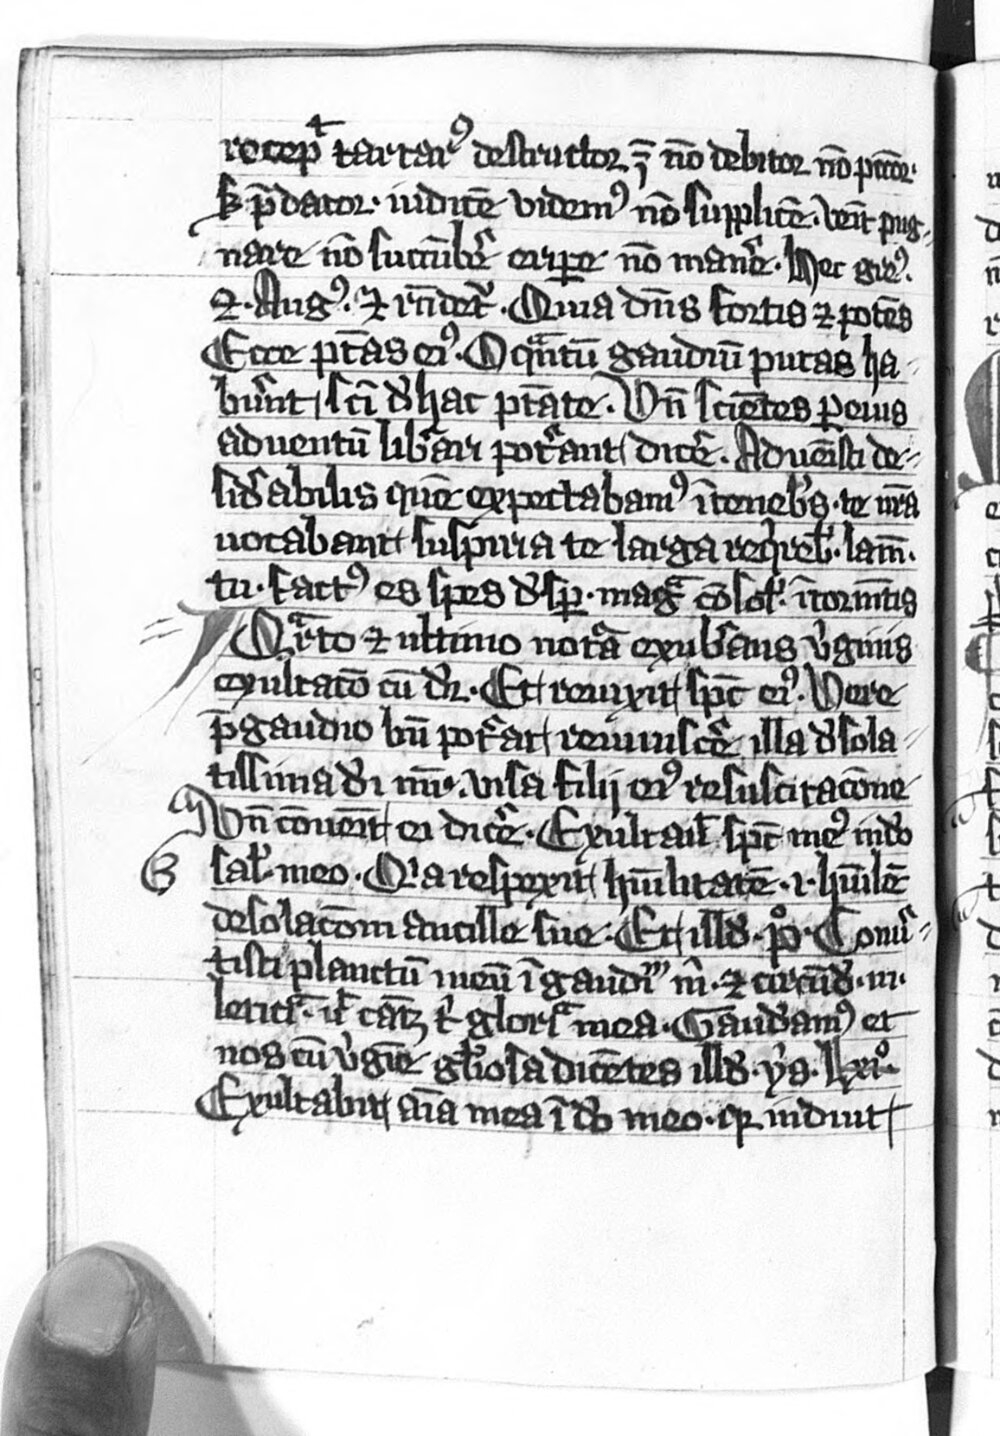 recep̄ͭ tartar⁹ destructor ē nō debitor nō pccōr·
s̄ p̄dator· iudicē videm⁹ nō supplicē· veīt pug-
nare nō succūbe͛ eripe͛ nō mane͛· Hec gre⁹·
⁊· Aug⁹· ⁊ rn̄det᷑· Quia dn̄s fortis ⁊ potēs
Ecce pt̄as ei⁹· O qᵃntū gaudiū putas ha-
bue͛nt sc̄i d͛ hac pt̄ate· Vn̄ scientes ꝑ eius
aduentū libe͛ari pote͛ant dice͛· Aduēisti de-
side͛abilis quē expectabam⁹ ī teneb͛s· te nr̄a
uocabant suspiria te larga reqⁱreb̄· lam̄·
tu· fact⁹ es spes d͛sꝑ· magᵃ cōsol̄· ī tormē̄tis
Qᵃrto ⁊ ultimo notᵃ exube͛ans v͛ginis
exultac̄o cū d̄r· Et reuixit sp̄c ei⁹· Vere
p̄ gaudio bn̄ pote͛at reuiuisce͛ illa d͛sola-
tissima d̄i mr̄· visa filij ei⁹ resuscitac̄one
Vn̄ cōuen̄it ei dice͛· Exultauit᷑ sp̄c me⁹ in d̄o
sal̄· meo· Qⁱa respexit hūilitatē· i· hūilē
desolac̄om ancille sue· Et ill̄d· p̄o· Conue͛-
tisti planctū meū ī gaudiū m̄· ⁊ circūd̄· m·
leticᵃ· ut cāt᷑ t gloriᵃ mea· Gaudeam⁹ et
nos cū v͛gīe gl̄iosa dicētes ill̄d· ys· lxi°
Exultabit aīa mea ī d̄o meo· qꝛ induit